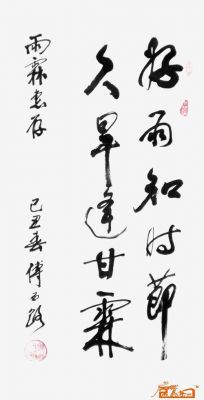 好雨知时节
久旱逢甘霖
雨霖惠存
己丑春傅西路